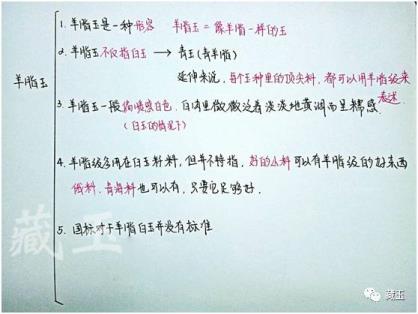 羊脂玉
1. 羊脂玉是一种形容 羊脂玉 = 像羊脂一样的玉
2. 羊脂玉不仅指白玉 → 青玉(青羊脂)
延伸来说, 每个玉种里的顶尖料, 都可以用羊脂级来
表述.
3. 羊脂玉一般偏暖白色, 白的里微微泛着淡淡地黄调而呈糯感.
(白玉的情况下)
4. 羊脂级多用在白玉籽料, 但并不特指, 好的山料可以有羊脂级的好东西
俄料, 青海料也可以有, 只要它足够好.
5. 国标对于羊脂白玉并没有标准
藏玉
藏玉